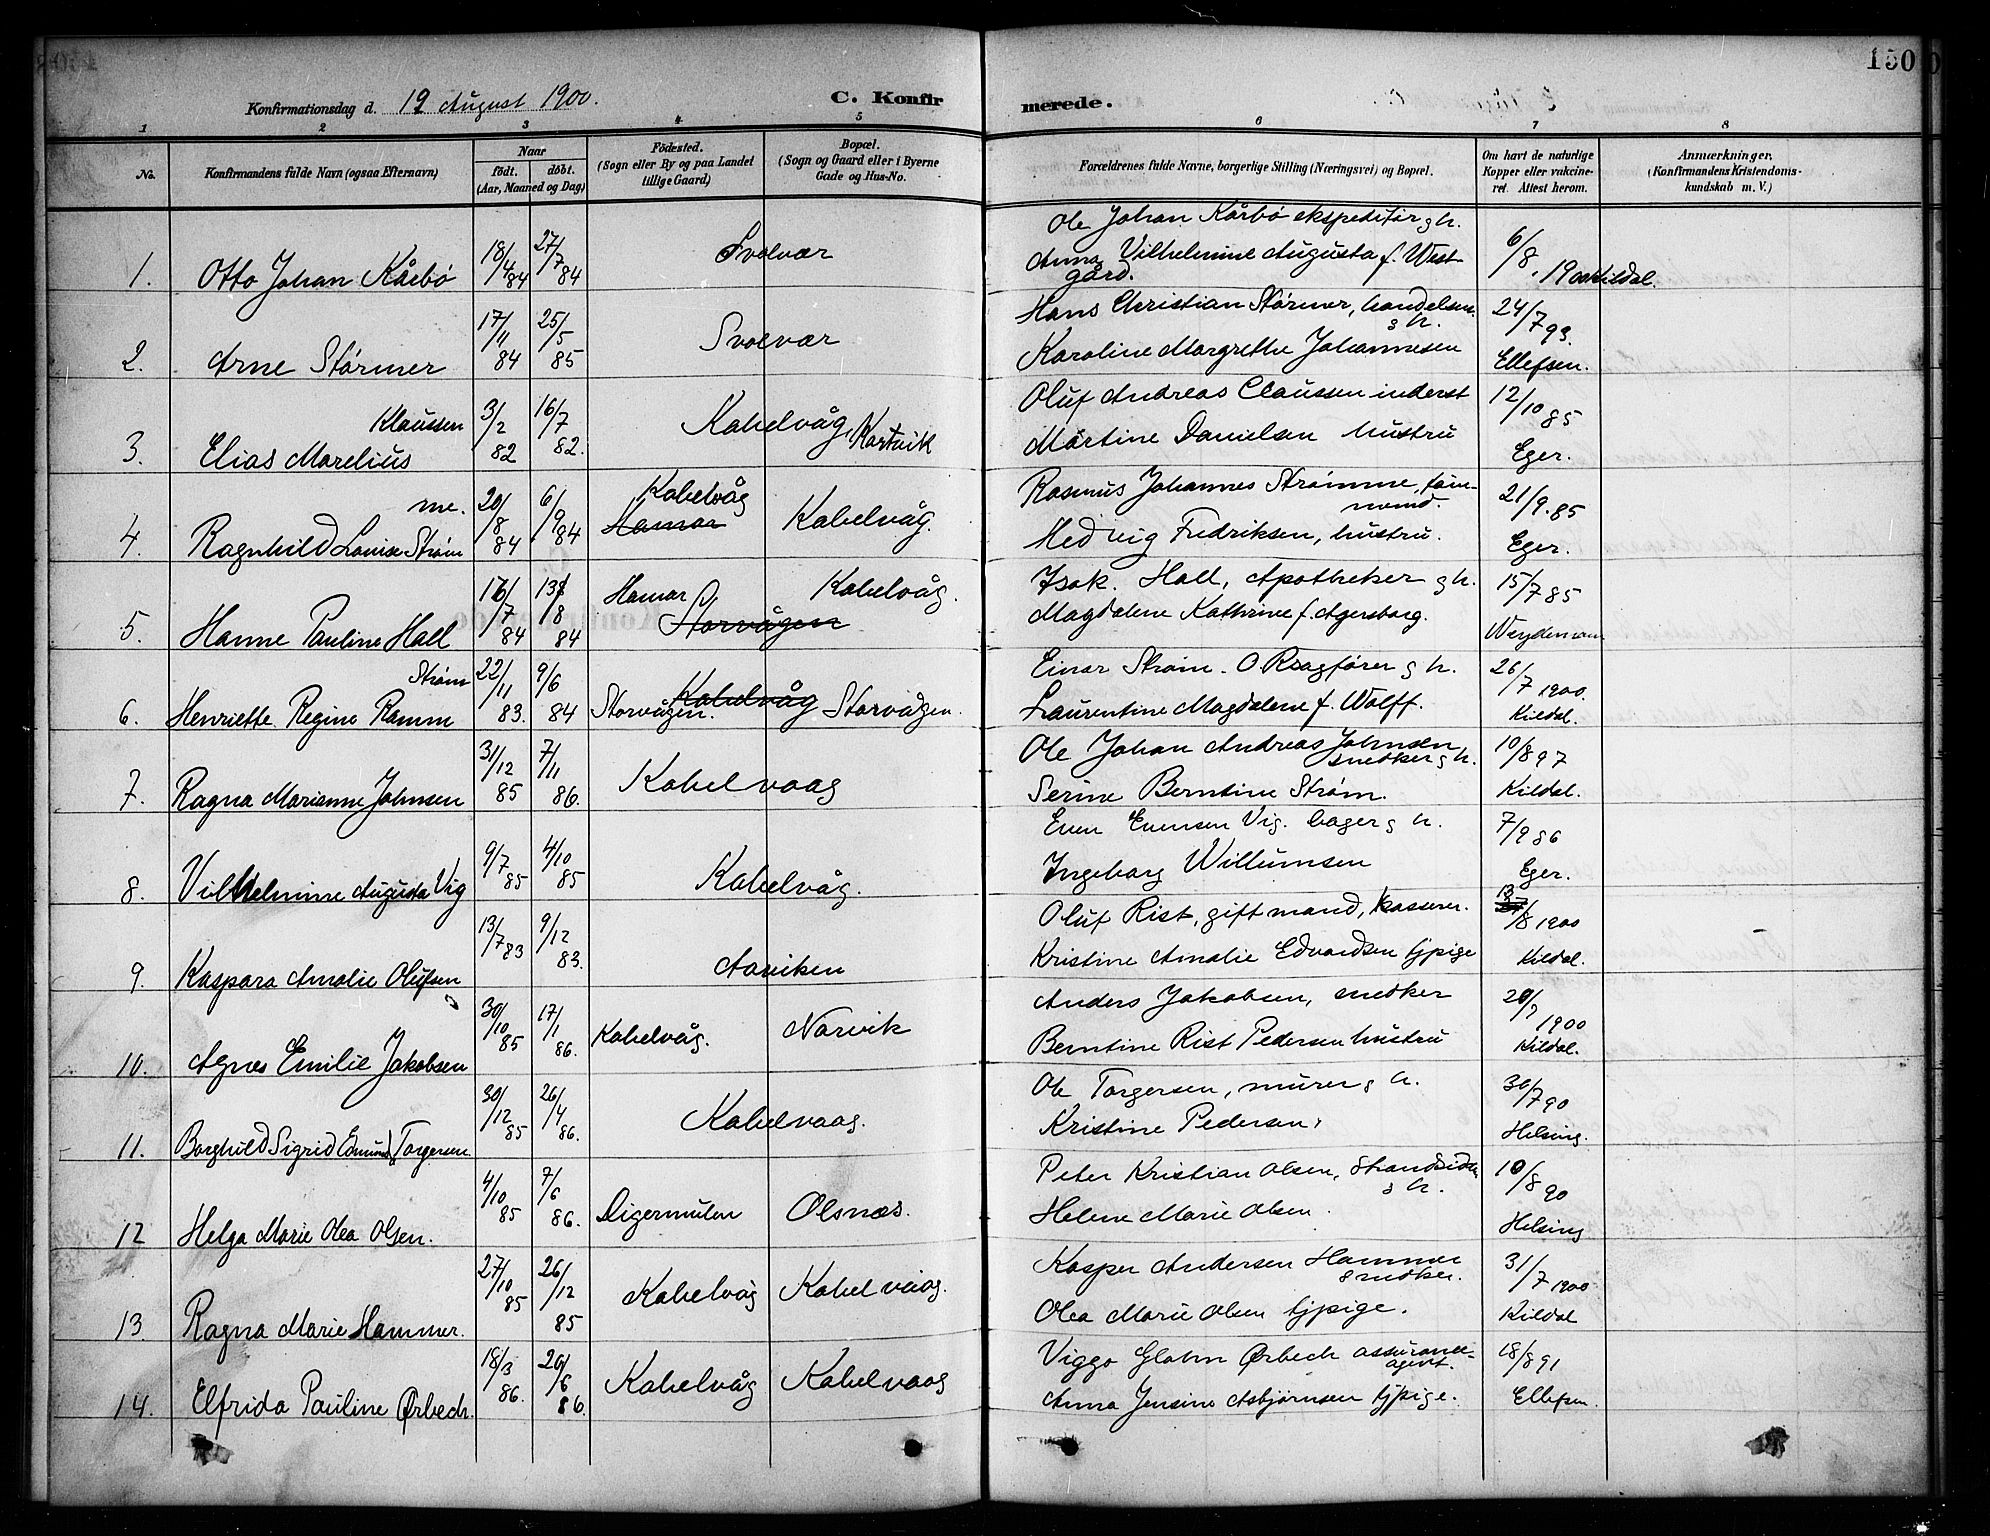 150
Konfirmationsdag d. 19 August 1900.
C. Konfirmerede.
1 2 3 4 5 6 7 8
No.
Konfirmandens fulde Navn (ogsaa Efternavn)
Naar
födt. döbt.
(Aar, Maaned og Dag)
Födested.
(Sogn eller By og paa Landet tillige Gaard)
Bopæl.
(Sogn og Gaard eller i Byerne Gade og Hus-No.
Forældrenes fulde Navne, borgerlige Stilling (Næringsvei) og Bopæl.
Om havt de naturlige Kopper eller vakcineret. Attest herom.
Anmærkninger.
(Konfirmandens Kristendomskundskab m. V.)
1. Otto Johan Kårbø 18/4 84 27/7 84 Svolvær
Ole Johan Kårbø ekspeditør g h.
Anna Vilhelmine Augusta f. Westgård.
6/8. 1900 Kildal.
2. Arne Størmer 17/11 84 25/5 85 Svolvær
Hans Christian Størmer, handelsm. g h.
Karoline Margrethe Johannesen
24/7 93. Ellefsen.
3. Elias Marelius Klaussen 3/2 82 16/7 82. Kabelvåg,
Oluf Andreas Claussen inderst
Martine Danielsen hustru
12/10 85 Eger.
4. Ragnhild Louise Strømme. 20/8 84 6/9 84 Kabelvåg Hamar Kabelvåg.
Rasmus Johannes Strømme,
Hedvig Fredriksen, hustru.
21/9. 85 Eger.
5. Hanne Pauline Hall 17/7 84 13/8 84 Hamar Storvågen Kabelvåg.
Isak. Hall, Apotheker g h.
Magdalene Kathrine f. Agersborg.
15/7 85 Weydemann
6. Henriette Regine Ramm Strøm 22/11 83. 9/6 84 Storvågen. Kabelvåg Storvågen.
Einar Strøm. O. Rsagfører g h.
Laurentine Magdalene f. Wolff.
26/7 1900. Kildal.
7. Ragna Marianne Johnsen 31/12 85 7/11 86. Kabelvaag
Ole Johan Andreas Johnsen snedker g h.
Serine Berntine Strøm.
10/8 97 Kildal.
8. Vilhelmine Augusta Vig 9/7 85 4/10 85 Kabelvåg.
Even Evensen Vig. bager g h.
Ingeborg Willumsen
7/9 86 Eger.
9. Kaspara Amalie Olufsen 13/7 83 9/12 83. Aaviken
Oluf Rist, gift mand, kasserer.
Kristine Amalie Edvardsen tjpige
13/8 1900 Kildal.
10. Agnes Emilie Jakobsen 30/10 85 17/1 86. Kabelvåg. Narvik
Anders Jakobsen, snedker
Berntine Rist Pedersen hustru
20/7 1900 Kildal.
11. Borghild Sigrid Edmunda Torgersen 30/12 85 26/4 86. Kabelvaag.
Ole Torgersen, murer g h.
Kristine Pedersen,
30/7 90 Helsing.
12 Helga Marie Olea Olsen. 4/10 85 7/6 86. Digermulen Olsnæs.
Peter Kristian Olsen, Strandsidder g h.
Helene Marie Olsen.
10/8 90 Helsing
13. Ragna Marie Hammer. 27/10 85 26/12 85 Kabelvåg Kabelvaag.
Kasper Andersen Hammer snedker.
Olea Marie Olsen tjpige.
31/7 1900 Kildal
14. Elfrida Pauline Ørbech. 18/3 86. 20/6 86. Kabelvåg Kabelvaag
Viggo Glahn Ørbech assuranceagent.
Anna Jensine Asbjørnsen tjpige.
18/8 91 Ellefsen.